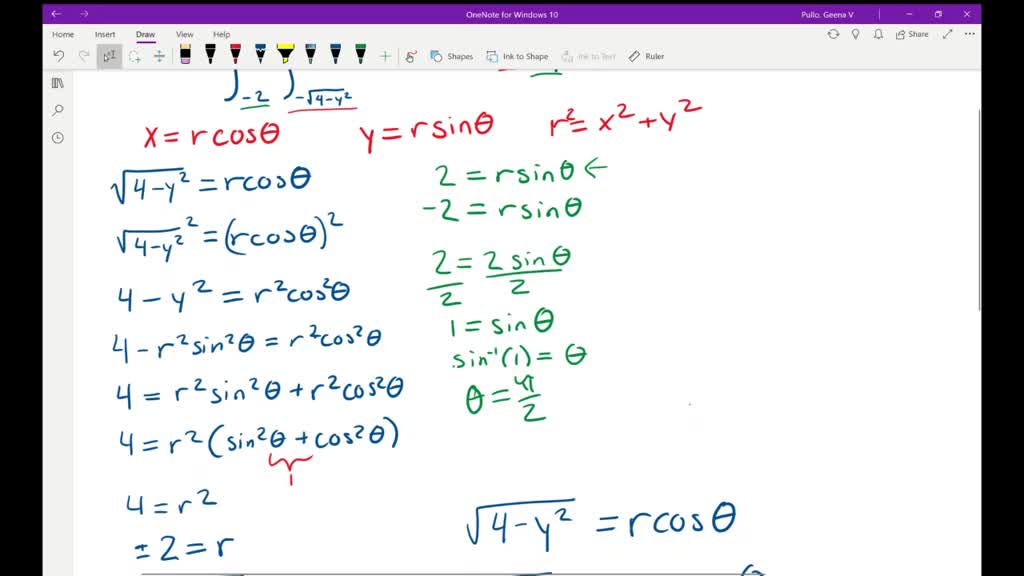 OneNote for Windows 10
Pullo, Geena V
Home Insert Draw View Help
Share
Shapes Ink to Shape Ink to Text Ruler
∫_-2 ∫_-√4-y²
x = rcosθ y = rsinθ r² = x² + y²
√4-y² = rcosθ
√4-y²² = (rcosθ)²
4 - y² = r²cos²θ
4 - r²sin²θ = r²cos²θ
4 = r²sin²θ + r²cos²θ
4 = r²(sin²θ + cos²θ)
1
4 = r²
± 2 = r
2 = rsinθ ←
-2 = rsinθ
2/2 = 2 sinθ/2
1 = sinθ
sin⁻¹(1) = θ
θ = π/2
√4-y² = rcosθ